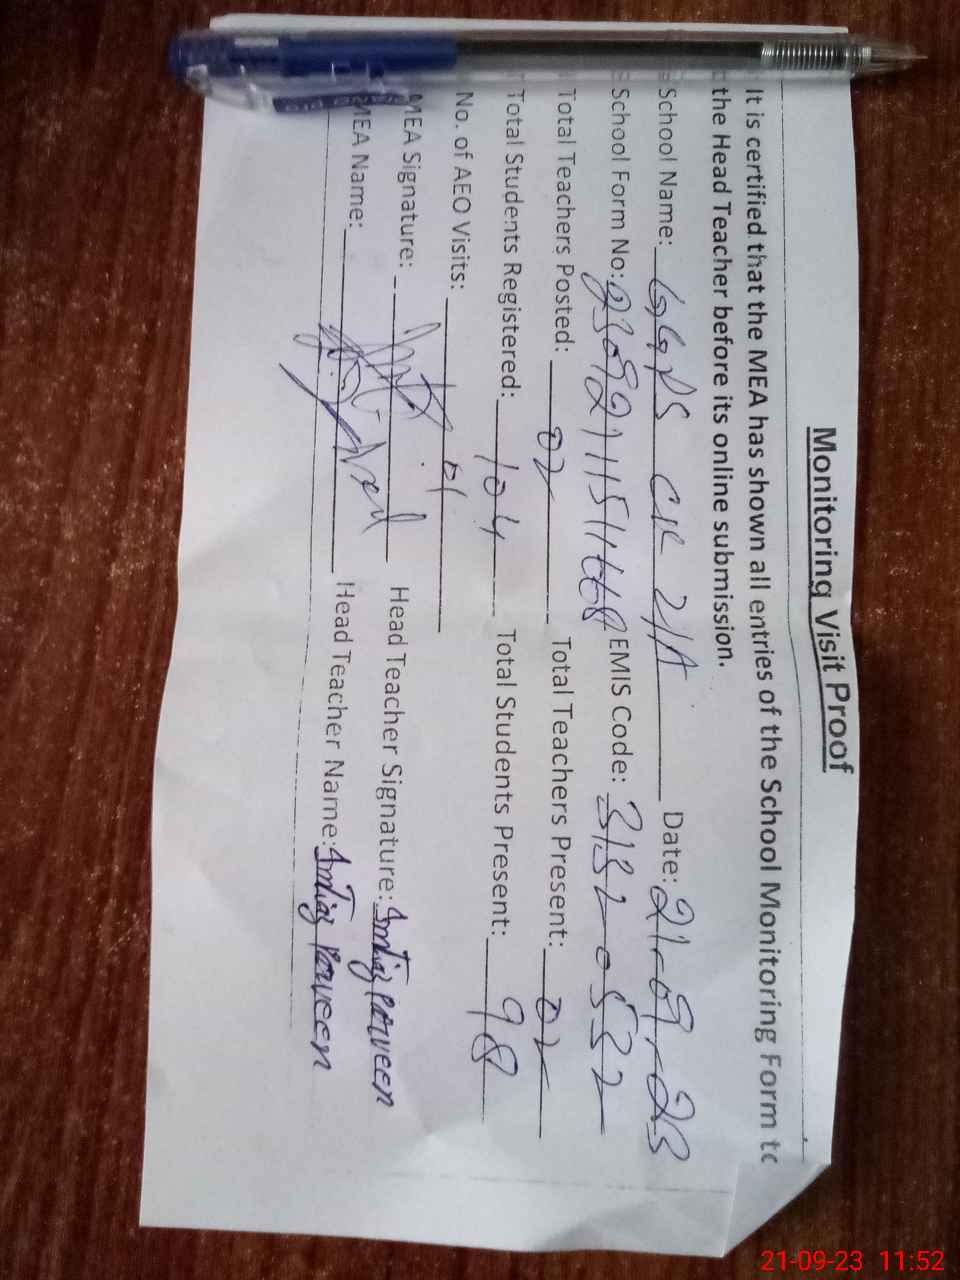 Monitoring Visit Proof
It is certified that the MEA has shown all entries of the School Monitoring Form to
the Head Teacher before its online submission.
School Name: GGPS CK 21/A Date: 21-09-23
School Form No: EMIS Code: 31320532
Total Teachers Posted: 02 Total Teachers Present: 02
Total Students Registered: 104 Total Students Present: 98
No. of AEO Visits: 01
MEA Signature: Head Teacher Signature: Imtiaz Parveen
MEA Name: Head Teacher Name: Imtiaz Parveen
21-09-23 11:52